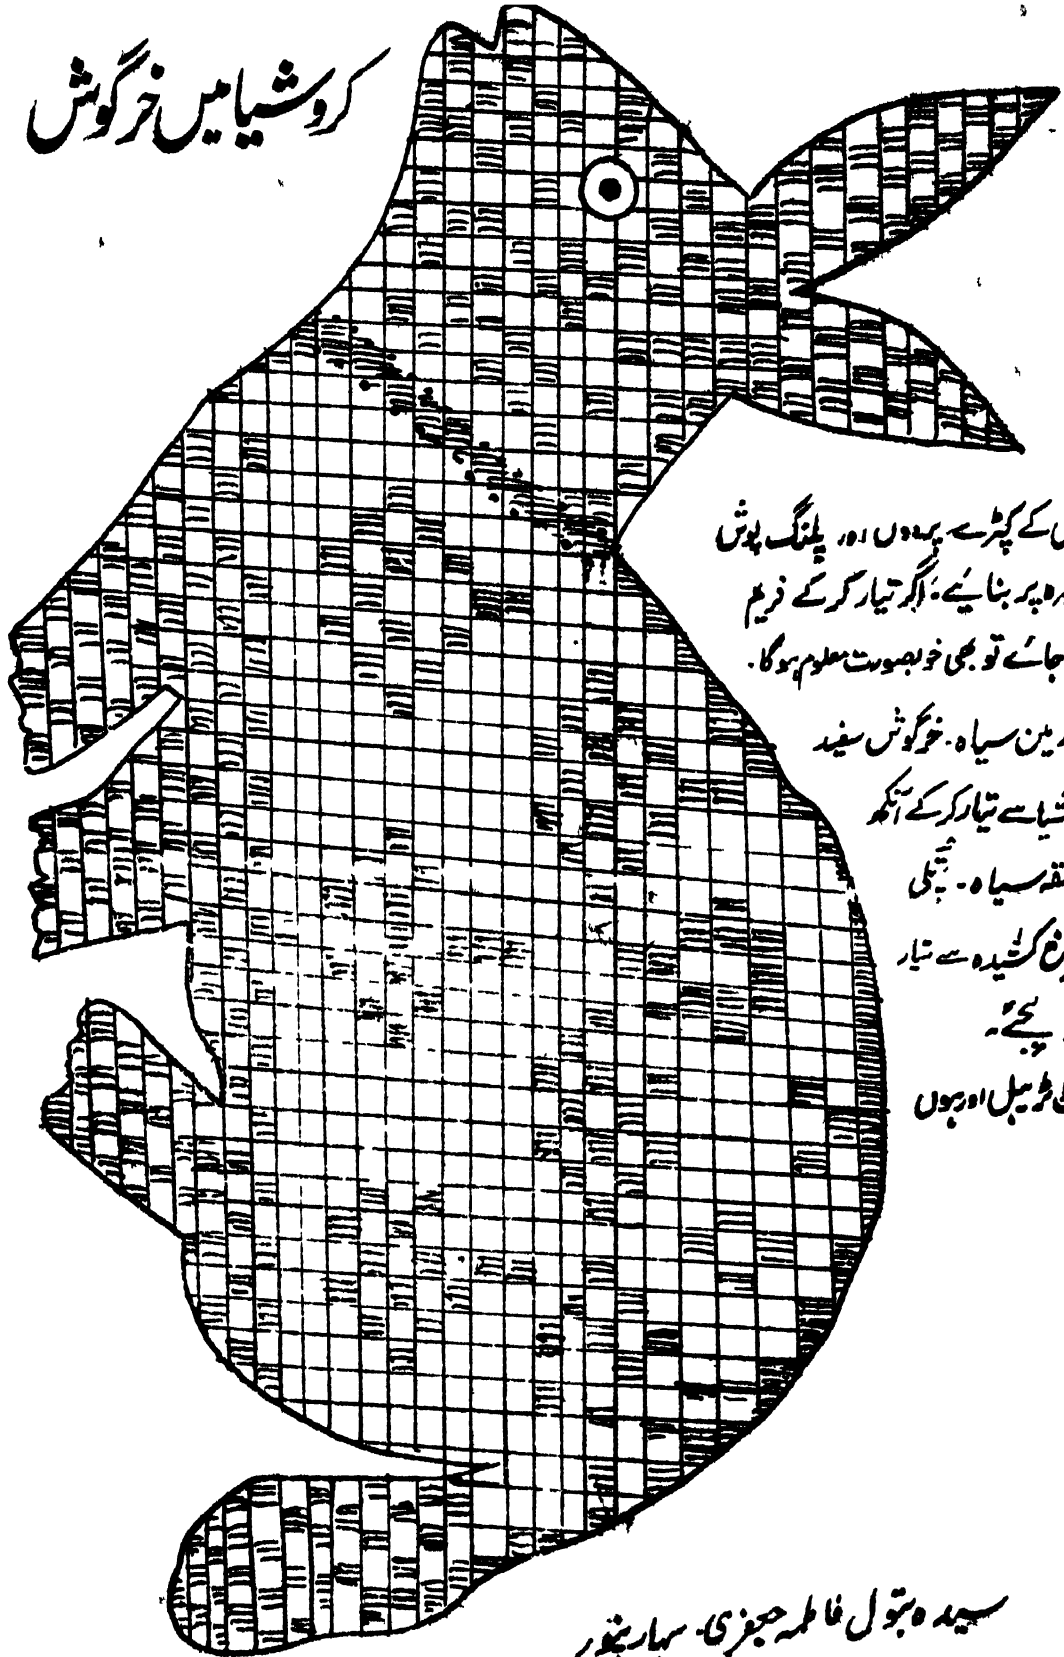 کروشیا میں خرگوش
کے کپڑے پردوں اور پلنگ پوش
پر بنائیے، اگر تیار کر کے فریم
جائے تو بھی خوبصورت معلوم ہوگا۔
سیاہ۔ خرگوش سفید
سے تیار کر کے آنکھ
سیاہ۔ پتلی
کشیدہ سے تیار
کیجئے۔
ٹربیل اور ہوں
سیدہ بتول فاطمہ جعفری۔ سہارنپور